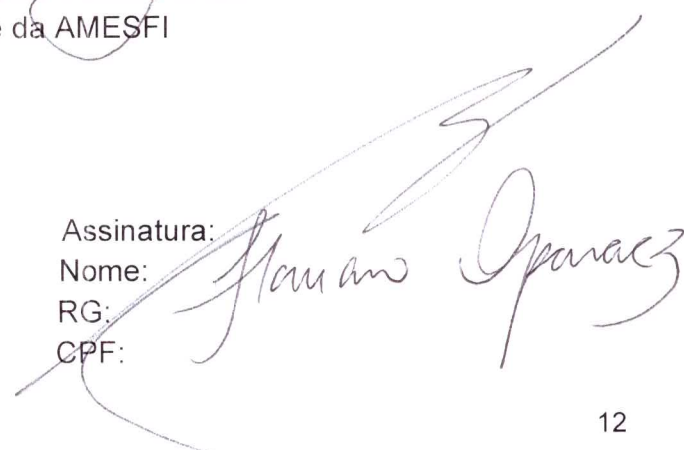 e da AMESFI
Assinatura:
Nome:
RG:
CPF:
12